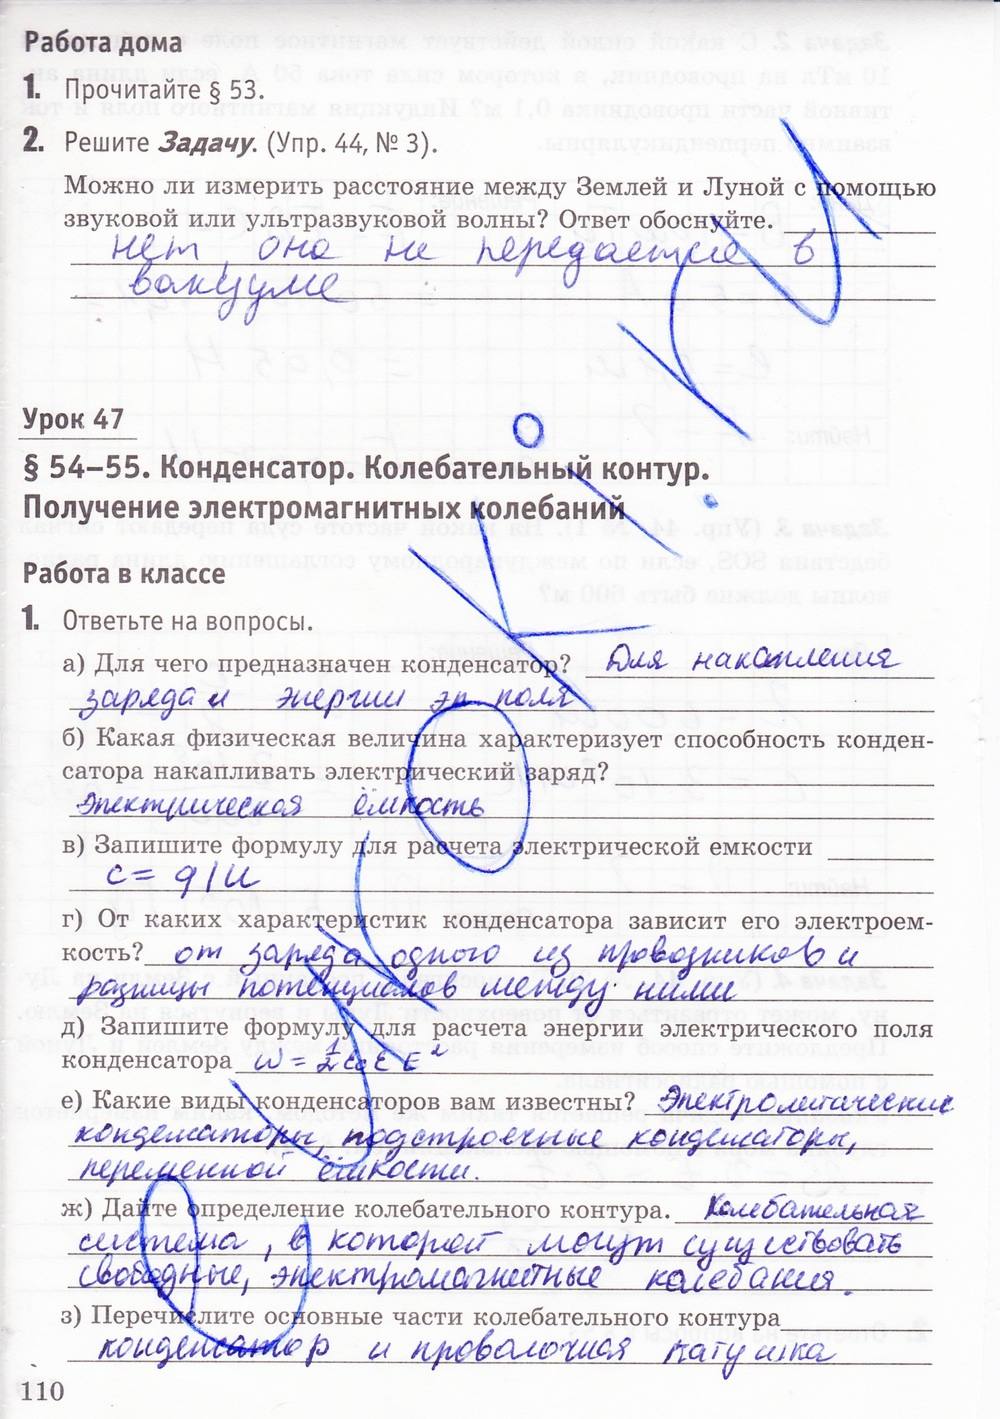 Работа дома
1. Прочитайте § 53.
2. Решите Задачу. (Упр. 44, № 3).
Можно ли измерить расстояние между Землей и Луной с помощью
звуковой или ультразвуковой волны? Ответ обоснуйте.
нет, она не передается в
вакууме
Урок 47
§ 54–55. Конденсатор. Колебательный контур.
Получение электромагнитных колебаний
Работа в классе
1. Ответьте на вопросы.
а) Для чего предназначен конденсатор? Для накопления
заряда и энергии эл поля
б) Какая физическая величина характеризует способность конден-
сатора накапливать электрический заряд?
Электрическая ёмкость
в) Запишите формулу для расчета электрической емкости
C = q / U
г) От каких характеристик конденсатора зависит его электроем-
кость? от заряда одного из проводников и
разницы потенциалов между ними
д) Запишите формулу для расчета энергии электрического поля
конденсатора
е) Какие виды конденсаторов вам известны? Электролитические
конденсаторы, подстроечные конденсаторы,
переменной ёмкости.
ж) Дайте определение колебательного контура. Колебательная
система, в которой могут существовать
свободные, электромагнитные колебания.
з) Перечислите основные части колебательного контура
конденсатор и проволочная катушка
110